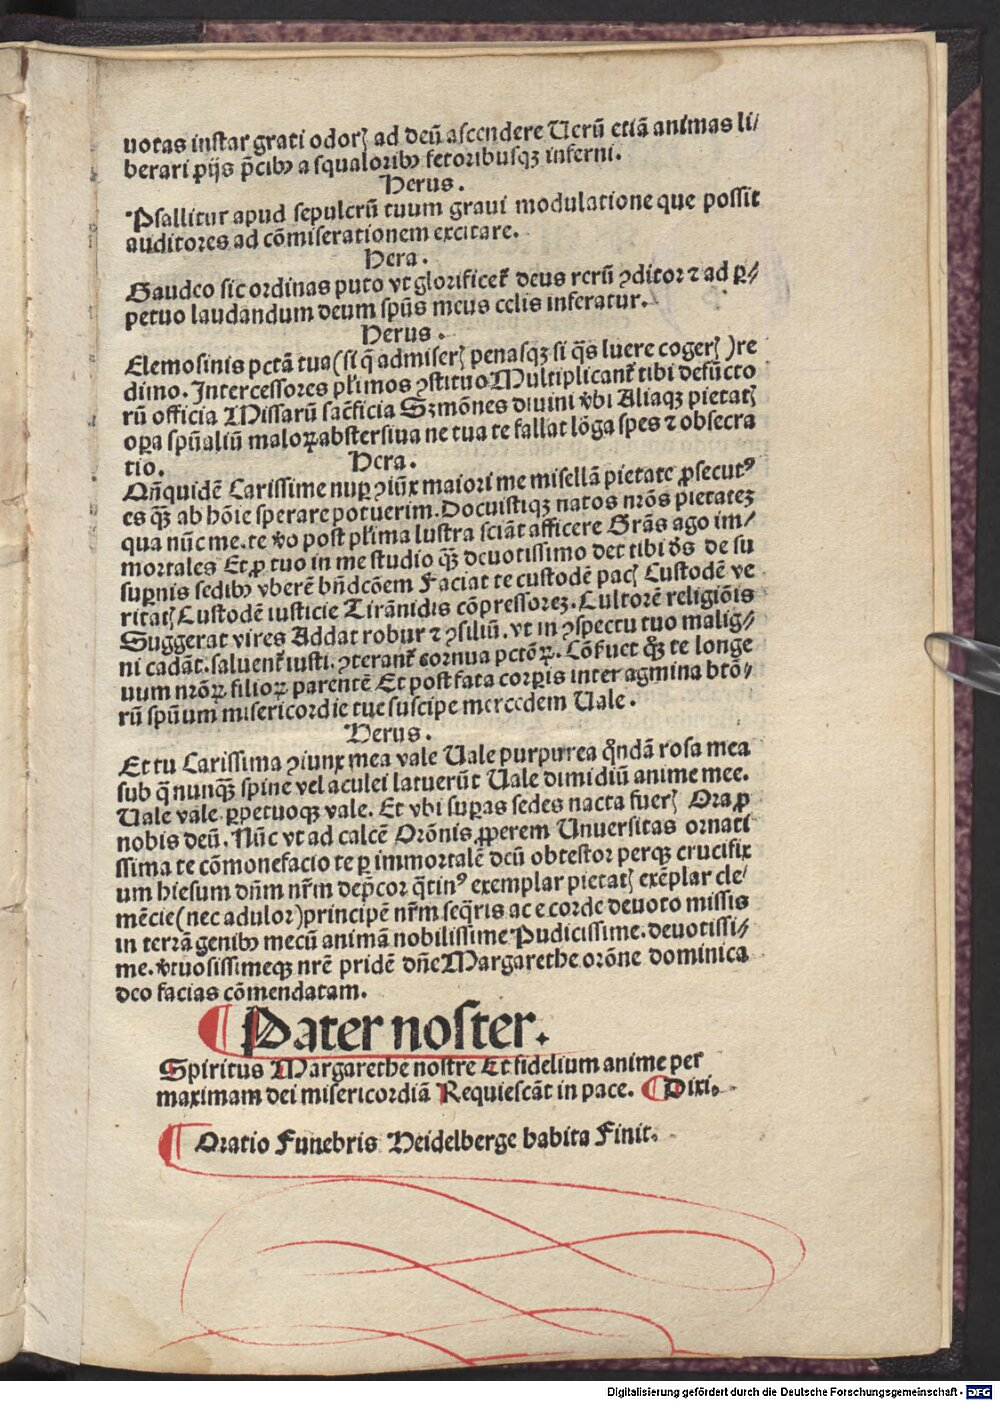 uotas instar grati odorꝭ ad deū ascendere Uerū etiā animas li/
berari ꝑ ijs p̄cibꝫ a squaloribꝫ fetoribusqꝫ inferni.
Herus.
Psallitur apud sepulcrū tuum graui modulatione que possit
auditores ad cōmiserationem excitare.
Hera.
Gaudeo sic ordinas puto vt glorificet᷑ deus rerū ꝯditor ⁊ ad ꝑ/
petuo laudandum deum spūs meus celis inferatur.
Herus.
Elemosinis pctā tua (si q̄ admiserꝭ penasqꝫ si q̄s luere cogerꝭ) re
dimo. Intercessores pl̄imos ꝯstituo Multiplicant᷑ tibi defūcto
rū officia Missarū sac̄ficia Sꝫmōnes diuini v̄bi Aliaqꝫ pietatꝭ
oꝑa spūaliū maloꝝ abstersiua ne tua te fallat lōga spes ⁊ obsecra
tio.
Hera.
Qn̄quidē Carissime nuꝑ ꝯiūx maiori me misellā pietate ꝓsecutꝰ
es qꝫ̄ ab hōie sperare potuerim. Docuistiqꝫ natos nr̄os pietatez
qua nūc me. te v̄o post pl̄ima lustra sciāt afficere Grās ago im/
mortales Et ꝓ tuo in me studio qꝫ̄ deuotissimo det tibi ds̄ de su
suꝑnis sedibꝫ vberē bn̄dcōem Faciat te custodē pacꝭ Custodē ve
ritatꝭ Custodē iusticie Tirānidis cōpressorez. Cultorē religiōis
Suggerat vires Addat robur ⁊ ꝯsiliū. vt in ꝯspectu tuo malig/
ni cadāt. saluent᷑ iusti. ꝯterant᷑ cornua pctōꝝ. Cōfuet qꝫ̄ te longe
uum nr̄oꝝ filioꝝ parentē Et post fata corꝑis inter agmina btō/
rū spūum misericordie tue suscipe mercedem Uale.
Herus.
Et tu Carissima ꝯiunx mea vale Uale purpurea qn̄dā rosa mea
sub q̄ nunqꝫ̄ spine vel aculei latuerūt Uale dimidiū anime mee.
Uale vale ꝑpetuoqꝫ vale. Et vbi suꝑas sedes nacta fuerꝭ Ora ꝓ
nobis deū. Nūc vt ad calcē Orōnis ꝓꝑerem Unuersitas ornati
ssima te cōmonefacio te ꝑ immortalē deū obtestor perqꝫ crucifix
um hiesum dn̄m nr̄m dep̄cor q̄tinꝰ exemplar pietatꝭ exēplar cle/
mēcie (nec adulor) principē nr̄m seq̄ris ac e corde deuoto missis
in terrā genibꝫ mecū animā nobilissime Pudicissime. deuotissi/
me. v̄tuosissimeqꝫ nr̄e pridē dn̄e Margarethe orōne dominica
deo facias cōmendatam.
¶ Pater noster.
Spiritus Margarethe nostre Et fidelium anime per
maximam dei misericordiā Requiescāt in pace. ¶ Dixi.
¶ Oratio Funebris Heidelberge habita Finit.
Digitalisierung gefördert durch die Deutsche Forschungsgemeinschaft - DFG